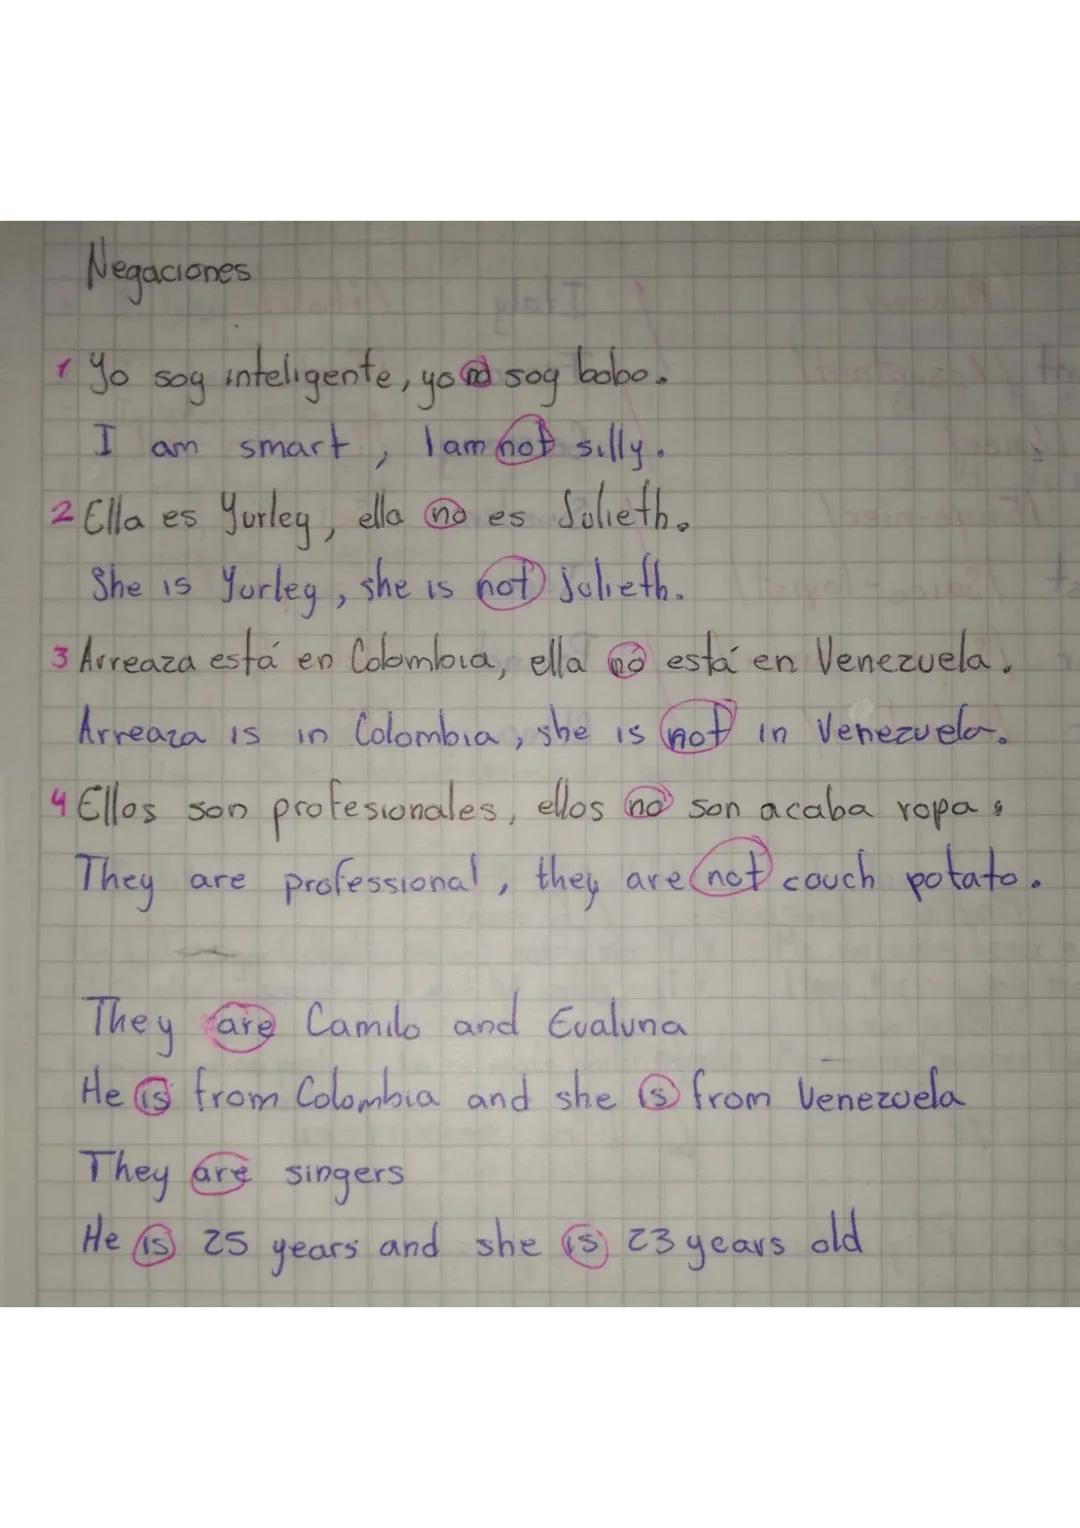 Negaciones
1 Yo soy inteligente, yo no soy bobo.
I am smart, I am not silly.
2 Ella es Yurley, ella no es Julieth.
She is Yurley, she is not Julieth.
3 Arreaza está en Colombia, ella no está en Venezuela.
Arreaza is in Colombia, she is not in Venezuela.
4 Ellos son profesionales, ellos no son acaba ropa.
They are professional, they are not couch potato.
They are Camilo and Evaluna
He is from Colombia and she is from Venezuela
They are singers
He is 25 years and she is 23 years old